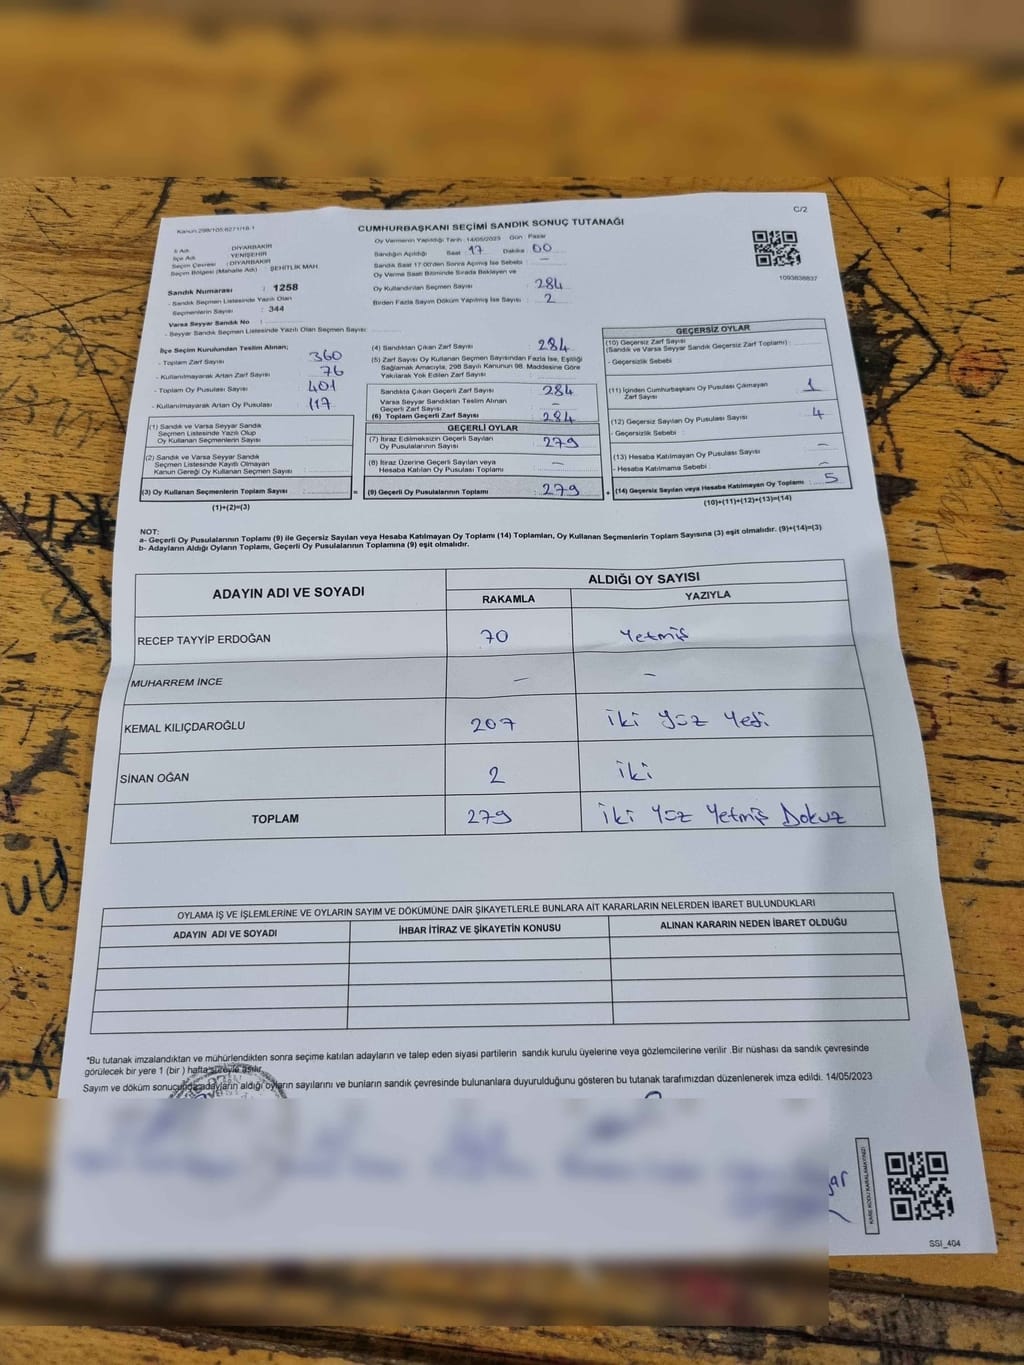 C/2
Kanun:298/105;6271/18-1
CUMHURBAŞKANI SEÇİMİ SANDIK SONUÇ TUTANAĞI
İl Adı : DİYARBAKIR
İlçe Adı : YENİŞEHİR
Seçim Çevresi : DİYARBAKIR
Seçim Bölgesi (Mahalle Adı) : ŞEHİTLİK MAH.
Sandık Numarası : 1258
- Sandık Seçmen Listesinde Yazılı Olan
Seçmenlerin Sayısı : 344
Varsa Seyyar Sandık No :
- Seyyar Sandık Seçmen Listesinde Yazılı Olan Seçmen Sayısı:
Oy Vermenin Yapıldığı Tarih : 14/05/2023 Gün : Pazar
Sandığın Açıldığı Saat : 17 Dakika : 00
Sandık Saat 17:00'den Sonra Açılmış İse Sebebi : —
Oy Verme Saati Bitiminde Sırada Bekleyen ve
Oy Kullandırılan Seçmen Sayısı : 284
Birden Fazla Sayım Döküm Yapılmış İse Sayısı : 2
1093838837
İlçe Seçim Kurulundan Teslim Alınan;
- Toplam Zarf Sayısı : 360
- Kullanılmayarak Artan Zarf Sayısı : 76
- Toplam Oy Pusulası Sayısı : 401
- Kullanılmayarak Artan Oy Pusulası : 117
(1) Sandık ve Varsa Seyyar Sandık
Seçmen Listesinde Yazılı Olup
Oy Kullanan Seçmenlerin Sayısı :
(2) Sandık ve Varsa Seyyar Sandık
Seçmen Listesinde Kayıtlı Olmayan
Kanun Gereği Oy Kullanan Seçmen Sayısı :
(3) Oy Kullanan Seçmenlerin Toplam Sayısı :
(1)+(2)=(3)
(4) Sandıktan Çıkan Zarf Sayısı : 284
(5) Zarf Sayısı Oy Kullanan Seçmen Sayısından Fazla İse, Eşitliği
Sağlamak Amacıyla, 298 Sayılı Kanunun 98. Maddesine Göre
Yakılarak Yok Edilen Zarf Sayısı :
Sandıkta Çıkan Geçerli Zarf Sayısı : 284
Varsa Seyyar Sandıktan Teslim Alınan
Geçerli Zarf Sayısı : —
(6) Toplam Geçerli Zarf Sayısı : 284
GEÇERLİ OYLAR
(7) İtiraz Edilmeksizin Geçerli Sayılan
Oy Pusulalarının Sayısı : 279
(8) İtiraz Üzerine Geçerli Sayılan veya
Hesaba Katılan Oy Pusulası Toplamı : —
= (9) Geçerli Oy Pusulalarının Toplamı : 279
GEÇERSİZ OYLAR
(10) Geçersiz Zarf Sayısı
(Sandık ve Varsa Seyyar Sandık Geçersiz Zarf Toplamı) :
- Geçersizlik Sebebi :
(11) İçinden Cumhurbaşkanı Oy Pusulası Çıkmayan
Zarf Sayısı : 1
(12) Geçersiz Sayılan Oy Pusulası Sayısı : 4
- Geçersizlik Sebebi :
(13) Hesaba Katılmayan Oy Pusulası Sayısı : —
- Hesaba Katılmama Sebebi : —
+ (14) Geçersiz Sayılan veya Hesaba Katılmayan Oy Toplamı : 5
(10)+(11)+(12)+(13)=(14)
NOT:
a- Geçerli Oy Pusulalarının Toplamı (9) ile Geçersiz Sayılan veya Hesaba Katılmayan Oy Toplamı (14) Toplamları, Oy Kullanan Seçmenlerin Toplam Sayısına (3) eşit olmalıdır. (9)+(14)=(3)
b- Adayların Aldığı Oyların Toplamı, Geçerli Oy Pusulalarının Toplamına (9) eşit olmalıdır.
ADAYIN ADI VE SOYADI ALDIĞI OY SAYISI
RAKAMLA YAZIYLA
RECEP TAYYİP ERDOĞAN 70 Yetmiş
MUHARREM İNCE — —
KEMAL KILIÇDAROĞLU 207 iki yüz Yedi
SİNAN OĞAN 2 iki
TOPLAM 279 iki Yüz Yetmiş Dokuz
OYLAMA İŞ VE İŞLEMLERİNE VE OYLARIN SAYIM VE DÖKÜMÜNE DAİR ŞİKAYETLERLE BUNLARA AİT KARARLARIN NELERDEN İBARET BULUNDUKLARI
ADAYIN ADI VE SOYADI İHBAR İTİRAZ VE ŞİKAYETİN KONUSU ALINAN KARARIN NEDEN İBARET OLDUĞU
*Bu tutanak imzalandıktan ve mühürlendikten sonra seçime katılan adayların ve talep eden siyasi partilerin sandık kurulu üyelerine veya gözlemcilerine verilir .Bir nüshası da sandık çevresinde
görülecek bir yere 1 (bir ) hafta süreyle asılır.
Sayım ve döküm sonucunda adayların aldığı oyların sayılarını ve bunların sandık çevresinde bulunanlara duyurulduğunu gösteren bu tutanak tarafımızdan düzenlenerek imza edildi. 14/05/2023
KARE KODU KARALAMAYINIZ!
SSI_404